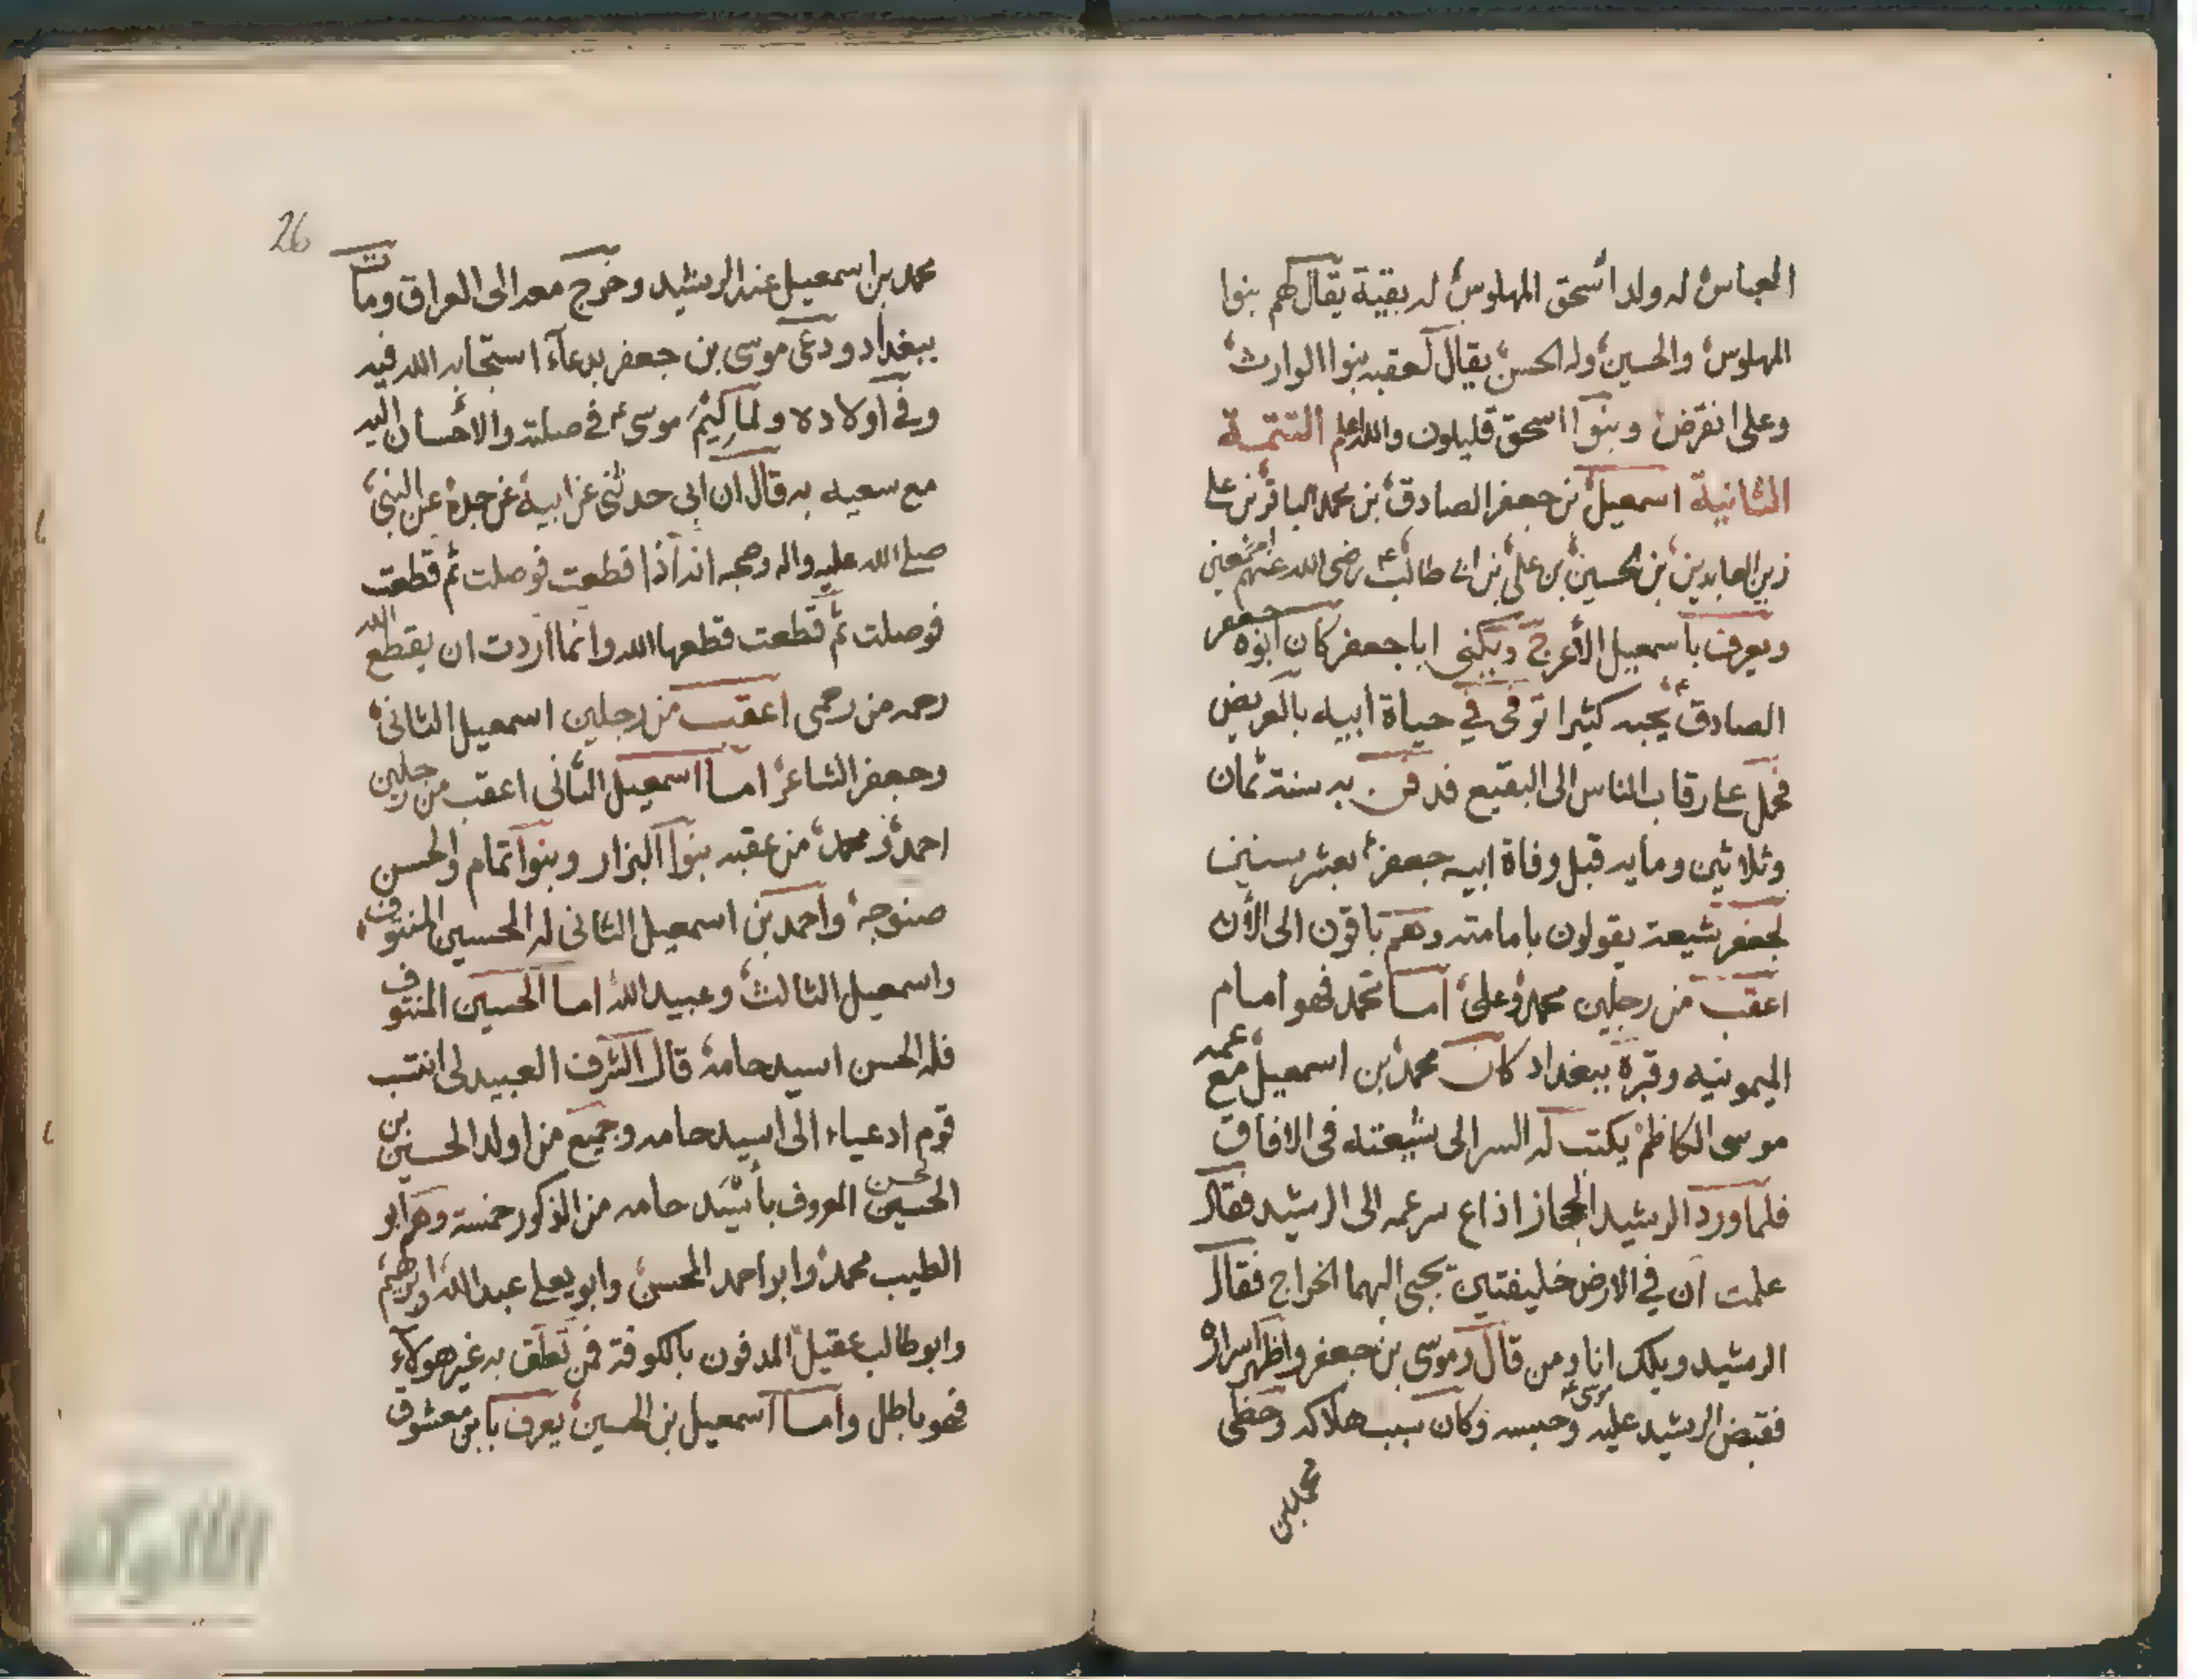 العباس له ولد اسحق المهلوس له بقية يقال لهم بنوا
المهلوس والحسين وله الحسن يقال لعقبه بنوا الوارث
وعلى انقرض وبنوا اسحق قليلون والله اعلم التتمة
الثانية اسمعيل بن جعفر الصادق بن محمد الباقر بن على
زين العابدين بن الحسين بن على بن ابى طالب رضى الله عنهم اجمعين
ويعرف باسمعيل الأعرج ويكنى ابا جعفر كان ابوه جعفر
الصادق يحبه كثيرا توفى فى حياة أبيه بالعريض
فحمل على رقاب الناس الى البقيع فدفن به سنة ثمان
وثلاثين ومايه قبل وفاة ابيه جعفر بعشر سنين
لجعفر شيعة يقولون بامامته وهم باقون الى الأن
اعقب من رجلين محمد وعلى اما محمد فهو امام
الميمونيه وقبره ببغداد كان محمد بن اسمعيل مع عمه
موسى الكاظم يكتب له السر الى شيعته فى الافاق
فلما ورد الرشيد الحجاز اذاع سر عمه الى الرشيد فقال
علمت ان فى الارض خليفتين يجبى اليهما الخراج فقال
الرشيد ويلك انا ومن قال وموسى بن جعفر واظهر اسراره
فقبض الرشيد عليه موسى وحبسه وكان سبب هلاكه وحظى
محمد بن
26
محمد بن اسمعيل عند الرشيد وخرج معه الى العراق ومات
ببغداد ودعى موسى بن جعفر بدعآء استجابه الله فيه
وفى اولاده ولما ليم موسى فى صلته والاحسان اليه
مع سعيه به قال ان ابى حدثنى عن ابيه عن جده عن النبى
صلى الله عليه واله وصحبه انه اذا قطعت فوصلت ثم قطعت
فوصلت ثم قطعت قطعها الله وانما اردت ان يقطع الله
رحمه من رحمى اعقب من رجلين اسمعيل الثانى
وجعفر الشاعر اما اسمعيل الثانى اعقب من رجلين
احمد ومحمد من عقبه بنوا البزار وبنوا تمام والحسن
صنوجه واحمد بن اسمعيل الثانى له الحسين المنتوف
واسمعيل الثالث وعبيد الله اما الحسين المنتوف
فله الحسن اسيد حامه قال الشرف العبيدلى انتسب
قوم ادعياء الى اسيد حامه وجميع من اولد الحسين بن
الحسين الحسن المعروف بأسيد حامه من الذكور خمسة وهم ابو
الطيب محمد وابو احمد المحسن وابو يعلى عبد الله وابرهيم
وابو طالب عقيل المدفون بالكوفة فمن تعلق به غير هولآء
فهو باطل واما اسمعيل بن الحسين يعرف بابن معشوق